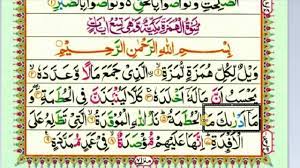 الصّٰلِحٰتِ وَتَوَاصَوْا بِالْحَقِّ وَتَوَاصَوْا بِالصَّبْرِ
سُوْرَةُ الْهُمَزَةِ مَكِّيَّةٌ وَّهِيَ تِسْعُ اٰيَاتٍ
بِسْمِ اللّٰهِ الرَّحْمٰنِ الرَّحِيْمِ
وَيْلٌ لِّكُلِّ هُمَزَةٍ لُّمَزَةِ ۙ الَّذِيْ جَمَعَ مَالًا وَّعَدَّدَهٗ
يَحْسَبُ اَنَّ مَالَهٗٓ اَخْلَدَهٗ كَلَّا لَيُنْۢبَذَنَّ فِي الْحُطَمَةِ وَ
مَآ اَدْرٰىكَ مَا الْحُطَمَةُ نَارُ اللّٰهِ الْمُوْقَدَةُ الَّتِيْ تَطَّلِعُ عَلَى
الْاَفْـِٕدَةِ اِنَّهَا عَلَيْهِمْ مُّؤْصَدَةٌ فِيْ عَمَدٍ مُّمَدَّدَةٍ